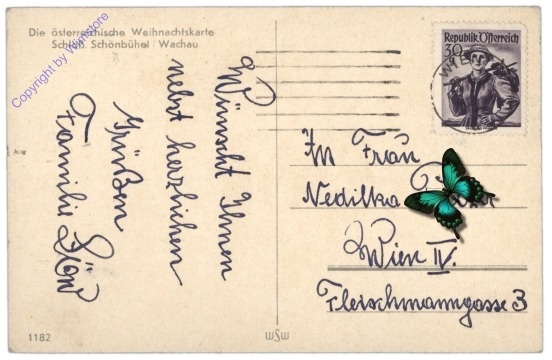 Die österreichische Weihnachtskarte
Schloß Schönbühel / Wachau
Copyright by Winistore
Wünscht Ihnen
nebst herzlichen
Grüßen
Familie
Republik Österreich
30
An Frau
Nedilka
Wien IV.
Fleischmanngasse 3
1182
WSW